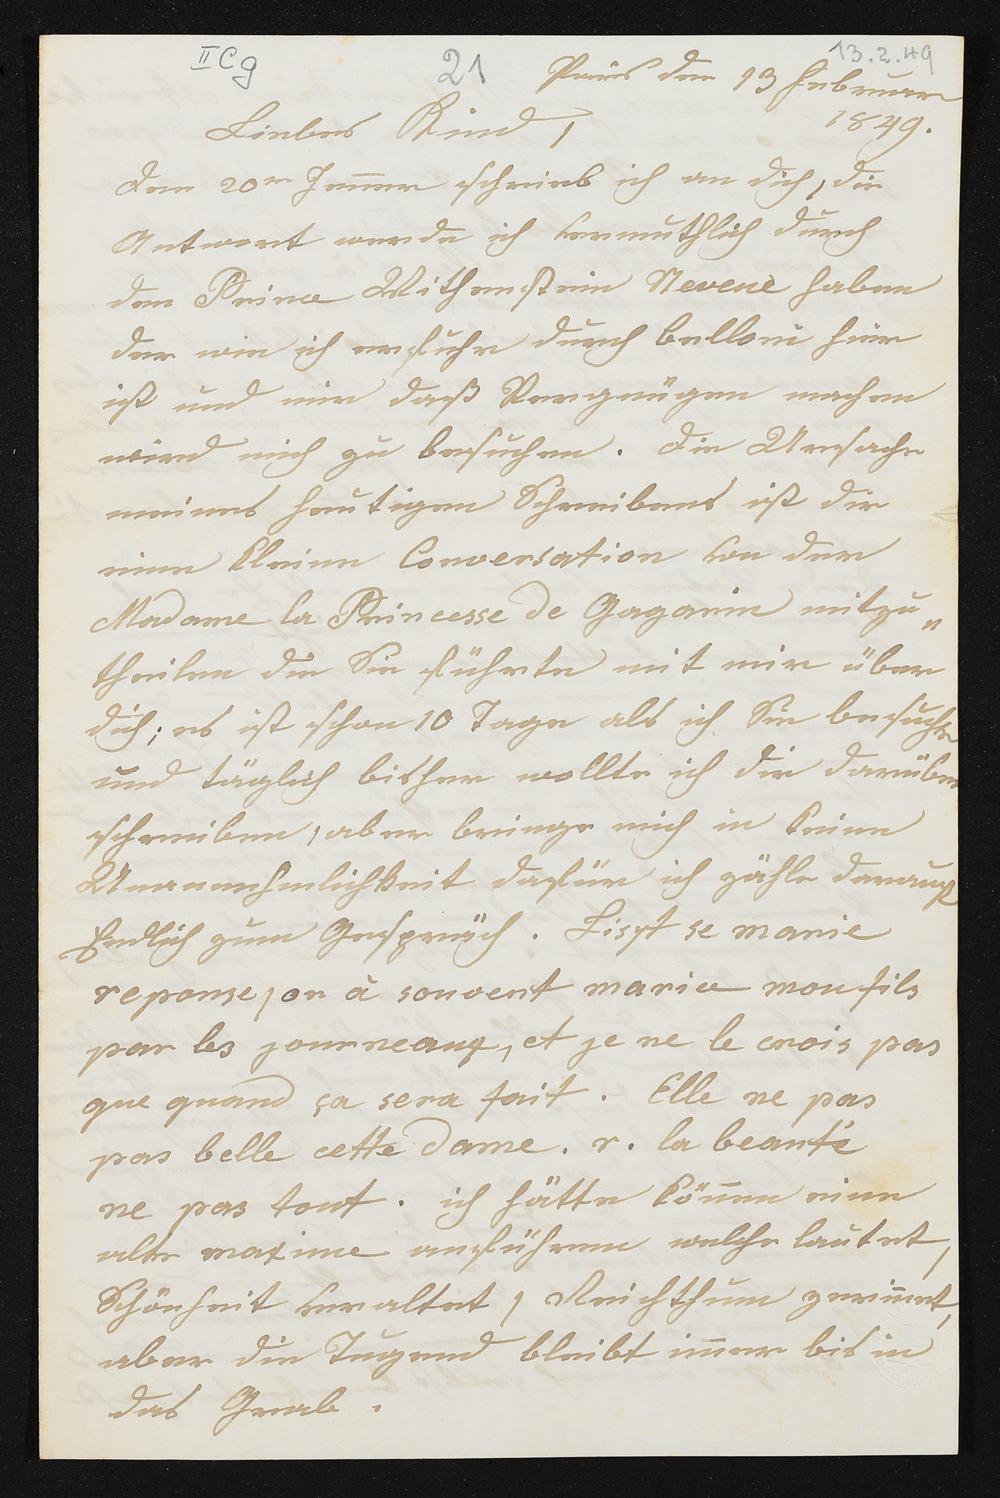 II C g 21 13.2.49
Paris den 13 Februar
1849.
Liebes Kind,
den 20ten Jenner schrieb ich an dich, die
Antwort werde ich vermuthlich durch
den Prince Withenstein Neveue haben
der wie ich erfuhr durch belloni hier
ist und mir daß Vergnügen machen
wird mich zu besuchen. Die Ursache
meines heutigen Schreibens ist dir
eine kleine Conversation von der
Madame la Princesse de Gagarin mitzu„
theilen die Sie führte mit mir über
dich; es ist schon 10 Tage als ich Sie besuchte
und täglich bisher wollte ich dir darüber
schreiben, aber bringe mich in keine
Unanemhmlichkeit dafür ich zähle darauf
Endlich zum Gespräch. Liszt se marie
reponse, on à souvent mariee mon fils
par les journeaux, et je ne le crois pas
que quand ça sera fait. Elle ne pas
pas belle cette dame. r. la beauté
ne pas tout. ich hätte können eine
alte maxime anführen welche lautet,
Schönheit veraltet, Reichthum zerinnet,
aber die Tugend bleibt imer bis in
das Grab.